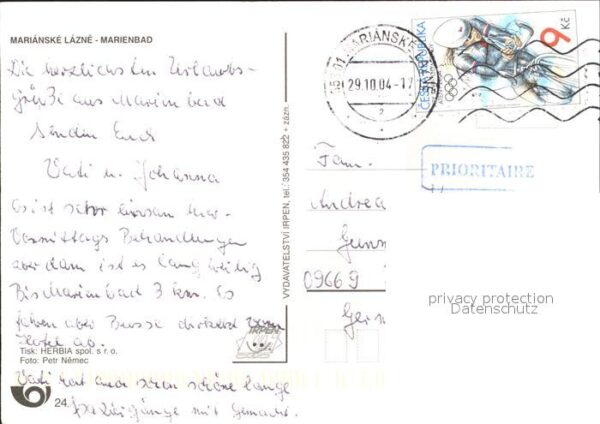 MARIÁNSKÉ LÁZNĚ - MARIENBAD
Die herzlichsten Urlaubs-
grüße aus Marienbad
senden Euch
Vati u. Johanna
es ist sehr einsam nur
Vormittags Behandlungen
aber dann ist es langweilig
Bis Marienbad 3 km. Es
fahren aber Busse direkt vom
Hotel ab.
Tisk: HERBIA spol. s r. o.
Foto: Petr Němec
Vati hat auch schon schöne lange
Spaziergänge mit gemacht.
24
VYDAVATELSTVÍ IRPEN, tel.: 354 435 822 + zázn.
IRPEN
MARIÁNSKÉ
29.10.04-17
2
ČESKÁ REPUBLIKA
9 Kč
PRIORITAIRE
Fam.
Andrea
09669
Ger
privacy protection
Datenschutz